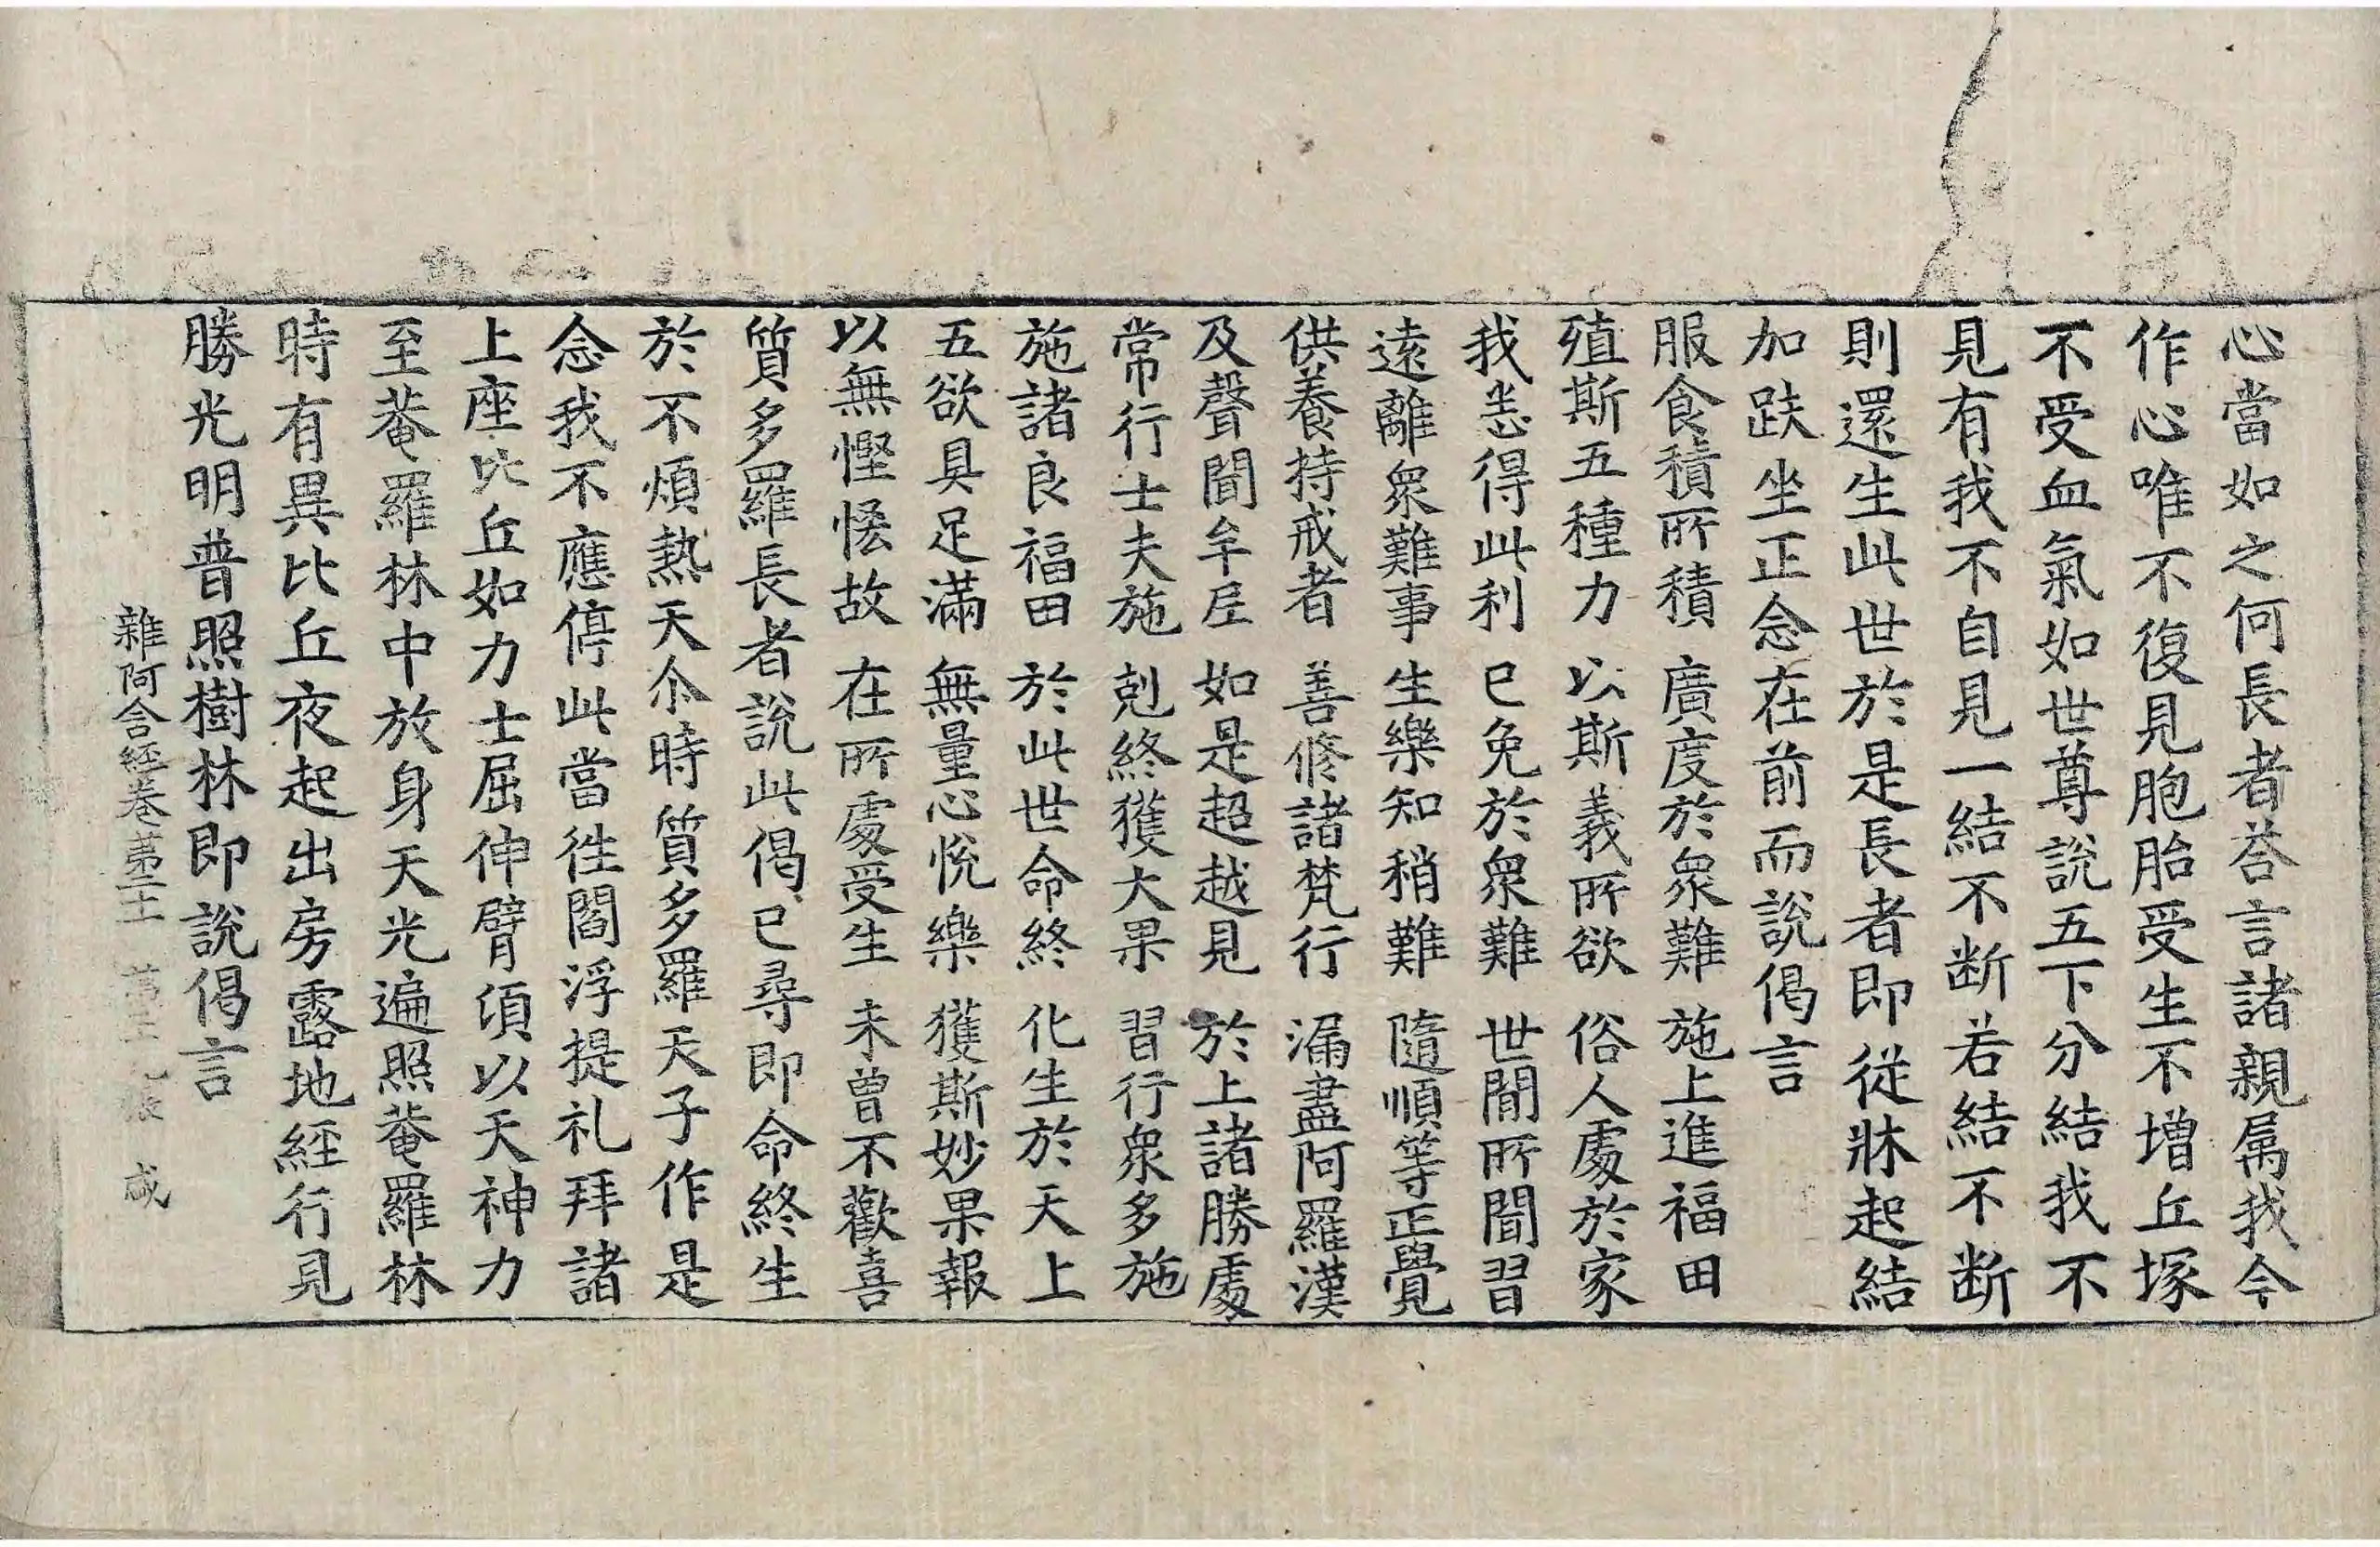 心當如之何長者荅言諸親属我今
作心唯不復見胞胎受生不增丘塚
不受血氣如世尊說五下分結我不
見有我不自見一結不断若結不断
則還生此世於是長者即從牀起結
加趺坐正念在前而說偈言
服食積所積　廣度於衆難　施上進福田
殖斯五種力　以斯義所欲　俗人處於家
我悉得此利　已免於衆難　世間所聞習
遠離衆難事　生樂知稍難　隨順等正覺
供養持戒者　善修諸梵行　漏盡阿羅漢
及聲聞牟尼　如是超越見　於上諸勝處
常行士夫施　剋終獲大果　習行衆多施
施諸良福田　於此世命終　化生於天上
五欲具足滿　無量心悅樂　獲斯妙果報
以無慳悋故　在所處受生　未曾不歡喜
質多羅長者說此偈已尋即命終生
於不煩熱天尒時質多羅天子作是
念我不應停此當徃閻浮提礼拜諸
上座比丘如力士屈伸臂頃以天神力
至菴羅林中放身天光遍照菴羅林
時有異比丘夜起出房露地經行見
勝光明普照樹林即說偈言
雜阿含經卷第二十一　張　咸